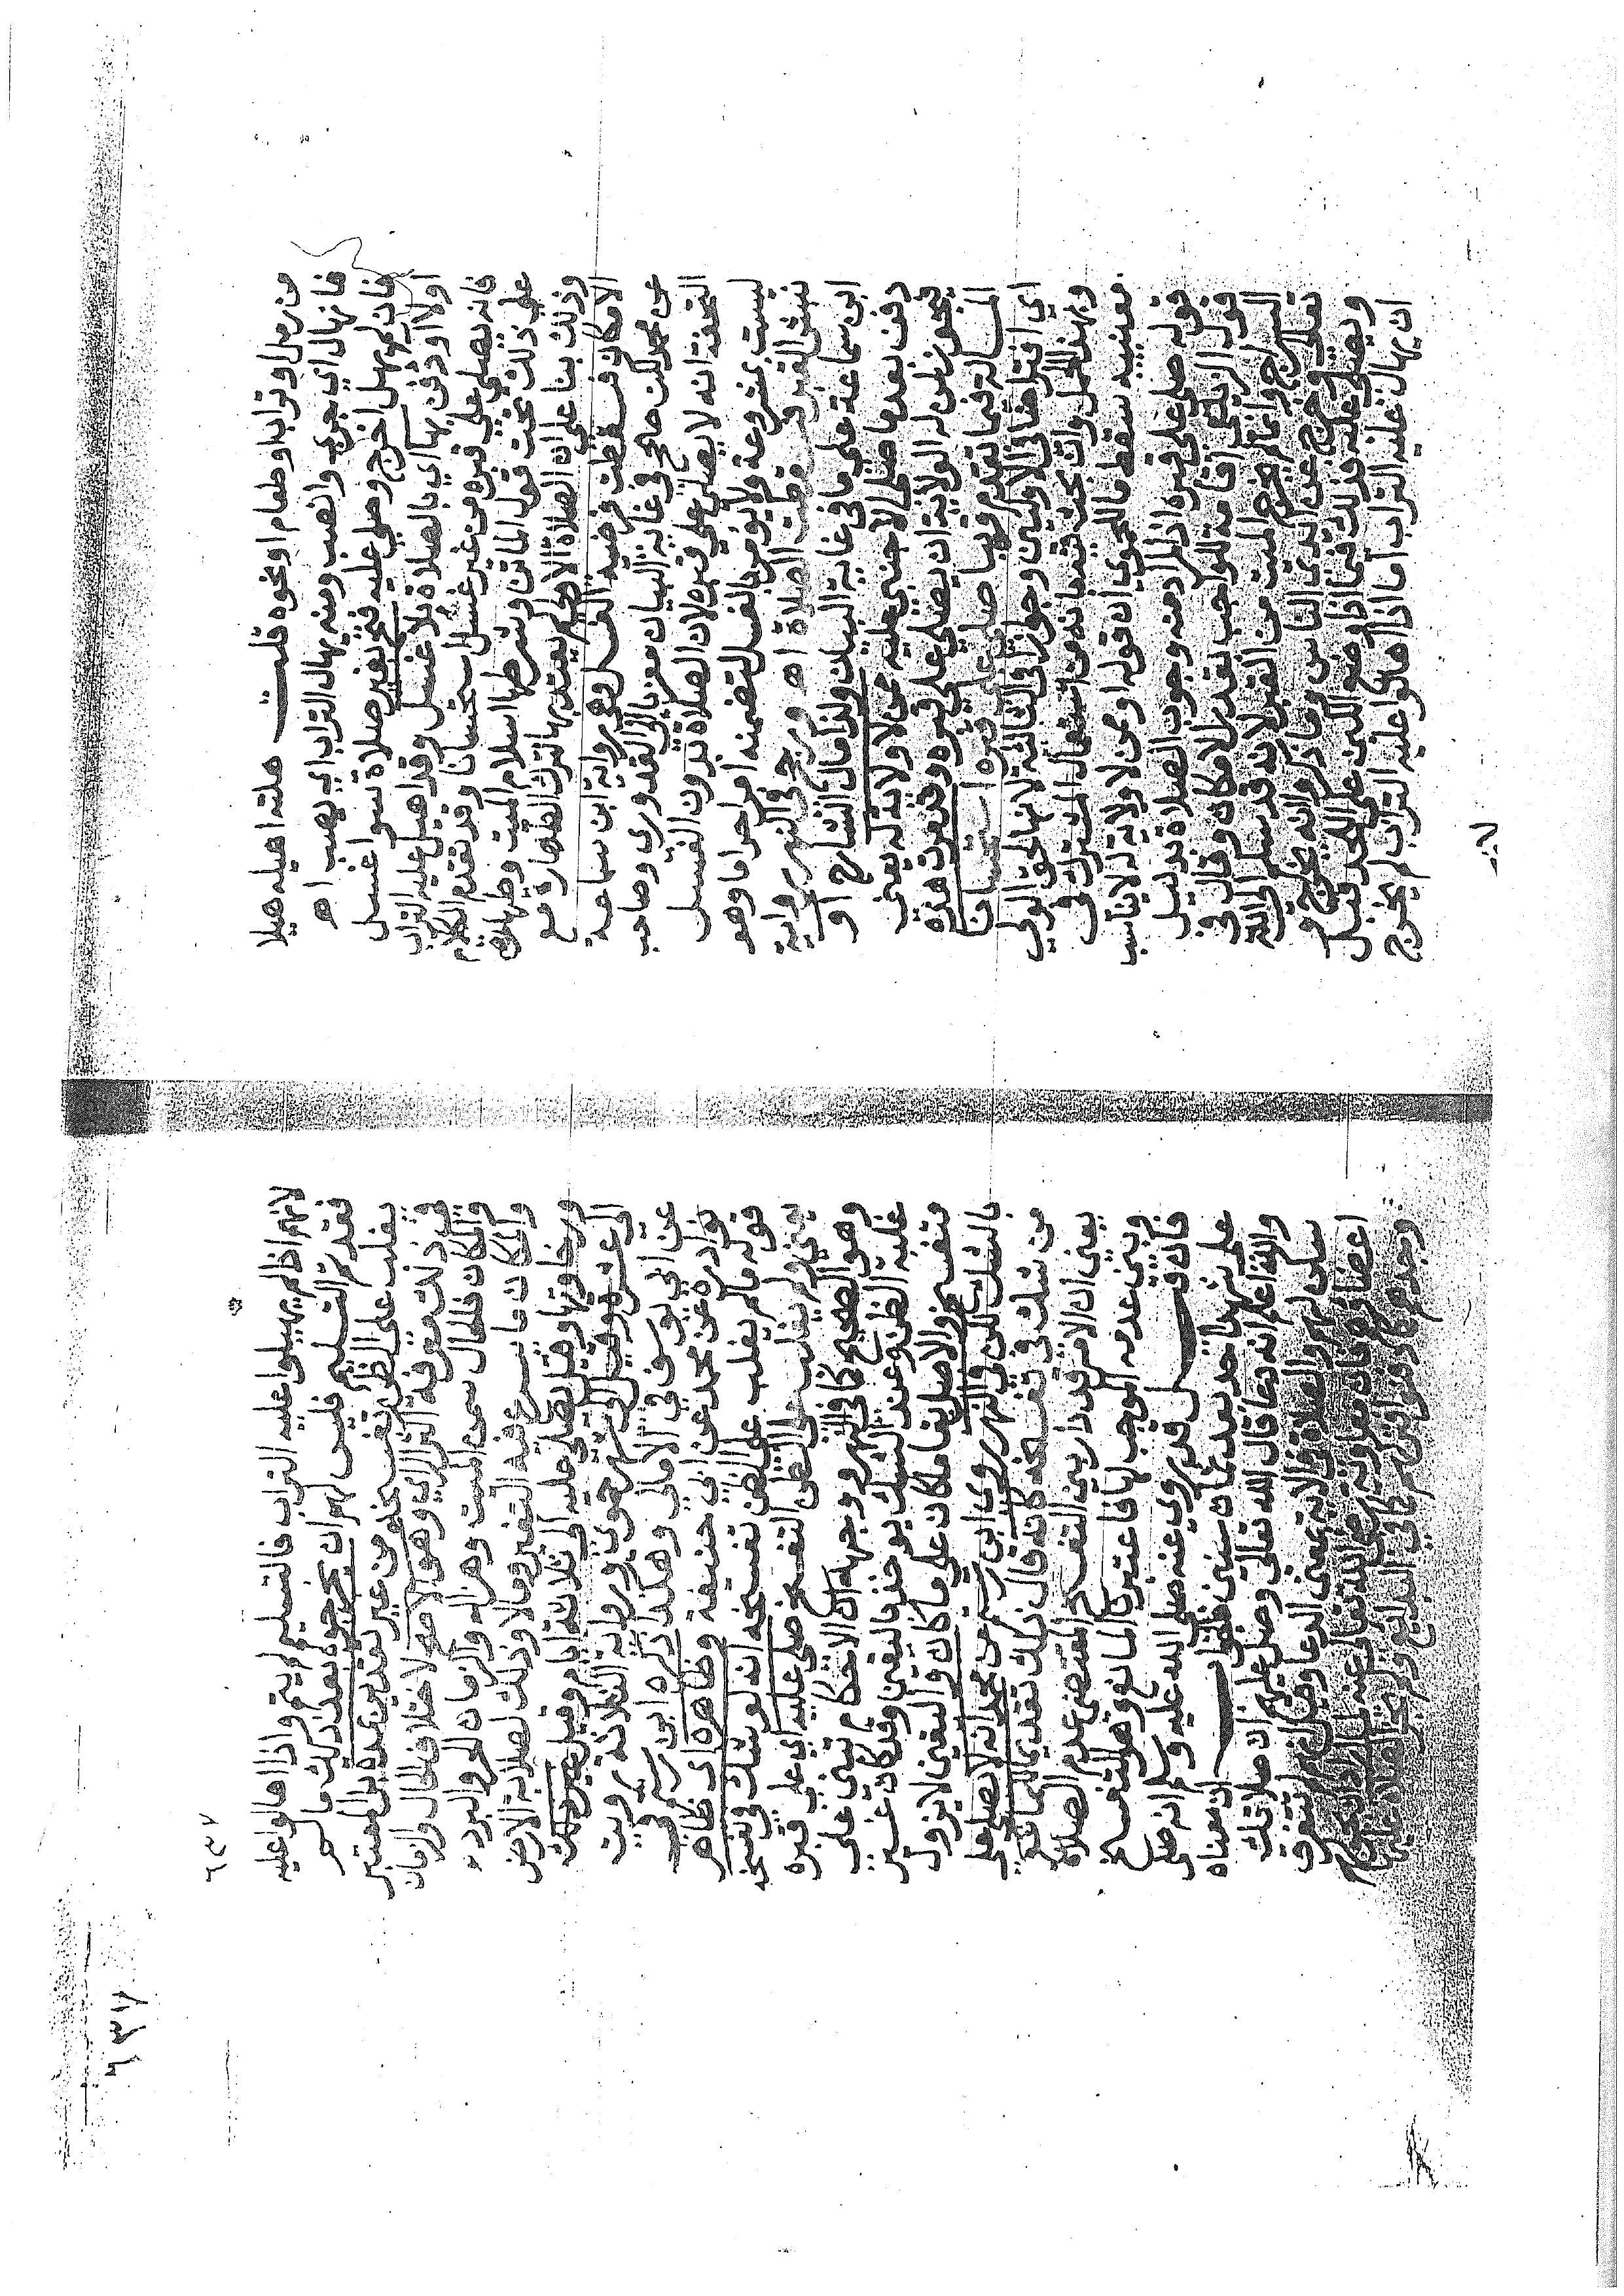 من رمل او تراب او طعام او نحوه قلت هلته اهيله هيلا
فانهال اي جرى وانصب ومنه يهال التراب اي يصب اهـ
فان لم يهل اخرج وصلي عليه فتح بغير صلاة سوا غسل
اولا او دفن بها اي بالصلاة بلا غسل وقد اهيل عليه التراب
فانه يصلي على قبره من غير غسل استحسانا وقد تقدم الكلام
على ذلك تحت قول الماتن وشرطها اسلام الميت وطهارته
وذلك بنا على ان الصلاة الاولى لم يعتد بها لترك الطهارة مع
الامكان فسقطت فرضية الغسل وهي رواية ابن سماعة
عن محمد لكن صحح في غاية البيان معزيا الى القدوري وصاحب
التحفة انه لا يصلي على قبره لان الصلاة بدون الغسل
ليست بمشروعة ولا يؤمر بالغسل لتضمنه امرا حراما وهو
نبش القبر فسقطت الصلاة اهـ ورجح في النهر رواية
ابن سماعة على ما في غاية البيان ولذا مال الشارح او
دفن بعد ما صلى الاجنبي عليه ممن لا ولاية له يعني
فيجوز لمن له الولاية ان يصلي على قبره وقد مرت هذه
المسالة فيما تقدم فيها صلي على قبره استحسانا
اي افتراضا في الاوليين وجوازا في الثالثة لانها لحق الولي
وبهذا الحمل وان بحث فيه بانه من استعمال المشترك في
معنييه سقط ما للحموي ان قوله او ممن لا ولاية له لا يناسب
قوله صلي على قبره اذ المراد منه وجوب الصلاة بدليل
قول الزيلعي اقامة للواجب بقدر الامكان وقال في
السراج وانما لم يخرج الميت من القبر لانه قد سلم الى الله
تعالى وخرج عن ايدي الناس وما ذكر وانه يخرج
ويصلى عليه فذلك فيما اذا وضع اللبن على اللحد قبل
ان يهال عليه التراب اما اذا هالوا عليه التراب لم يخرج
لانهم
٦٣٧
٦٣٧
لانهم اذا لم يهيلوا عليه التراب فالتسليم لم يتم واذا هالوا عليه
فقد تم التسليم فليس لهم ان يخرجوه بعد ذلك ما لم
يغلب على الظن تفسخه من غير تقدير بمدة بل المعتبر
في ذلك معرفة اكبر الراي وهو الاصح لاختلاف الحال والزمان
والمكان فالحال سمن الميت وهزاله والزمان الحر والبرد
والمكان ما يسرع فيه التغير وما لا وذلك لصلابة الارض
ورخاوتها وقيل يصلي عليه الى ثلاثة ايام وقيل غير ذلك
الى عشرة وقيل الى شهر حموي ورواية الثلاثة رويت
عن ابي يوسف في الامالي وهكذا ذكره ابن رستم في
نوادره عن محمد عن ابي حنيفة وظاهره اي ظاهر
قوله ما لم يغلب على الظن تفسخه انه لو شك في تفسخه
يعني ولم يغلب على الظن التفسخ صلي عليه اي على قبره
وهو الصحيح كما في النهر ووجهه ان الاحكام تبنى على
غلبة الظن وعند الشك يؤخذ باليقين وقد كان غير
متفسخ والاصل بقا ما كان على ما كان واليقين لا يزول
بالشك لكن في النهر روى ابن رستم عن محمد انه لا يصلى على
من شك في تفسخه كانه قال ذلك تقديما للمانع
يعني ان الامر قد دار بين التفسخ المقتضي عدم الصلاة
وبين عدمه الموجب لها فاعتبرنا المانع وهو التفسخ
فان قيل قد روي عنه صلى الله عليه وسلم انه صلى
على شهدا احد بعد ثمان سنين فالجواب ان معناه
والله اعلم انه دعا قال الله تعالى وصل عليهم ان صلاتك
سكن لهم والصلاة في الآية بمعنى الدعا وقيل انهم لم تتفرق
اعضاؤهم فان معاوية رضي الله تعالى عنه لما اراد ان يحولهم
وجدهم كما دفنوا فتركهم كما في البدايع ولم يجز الصلاة عليها